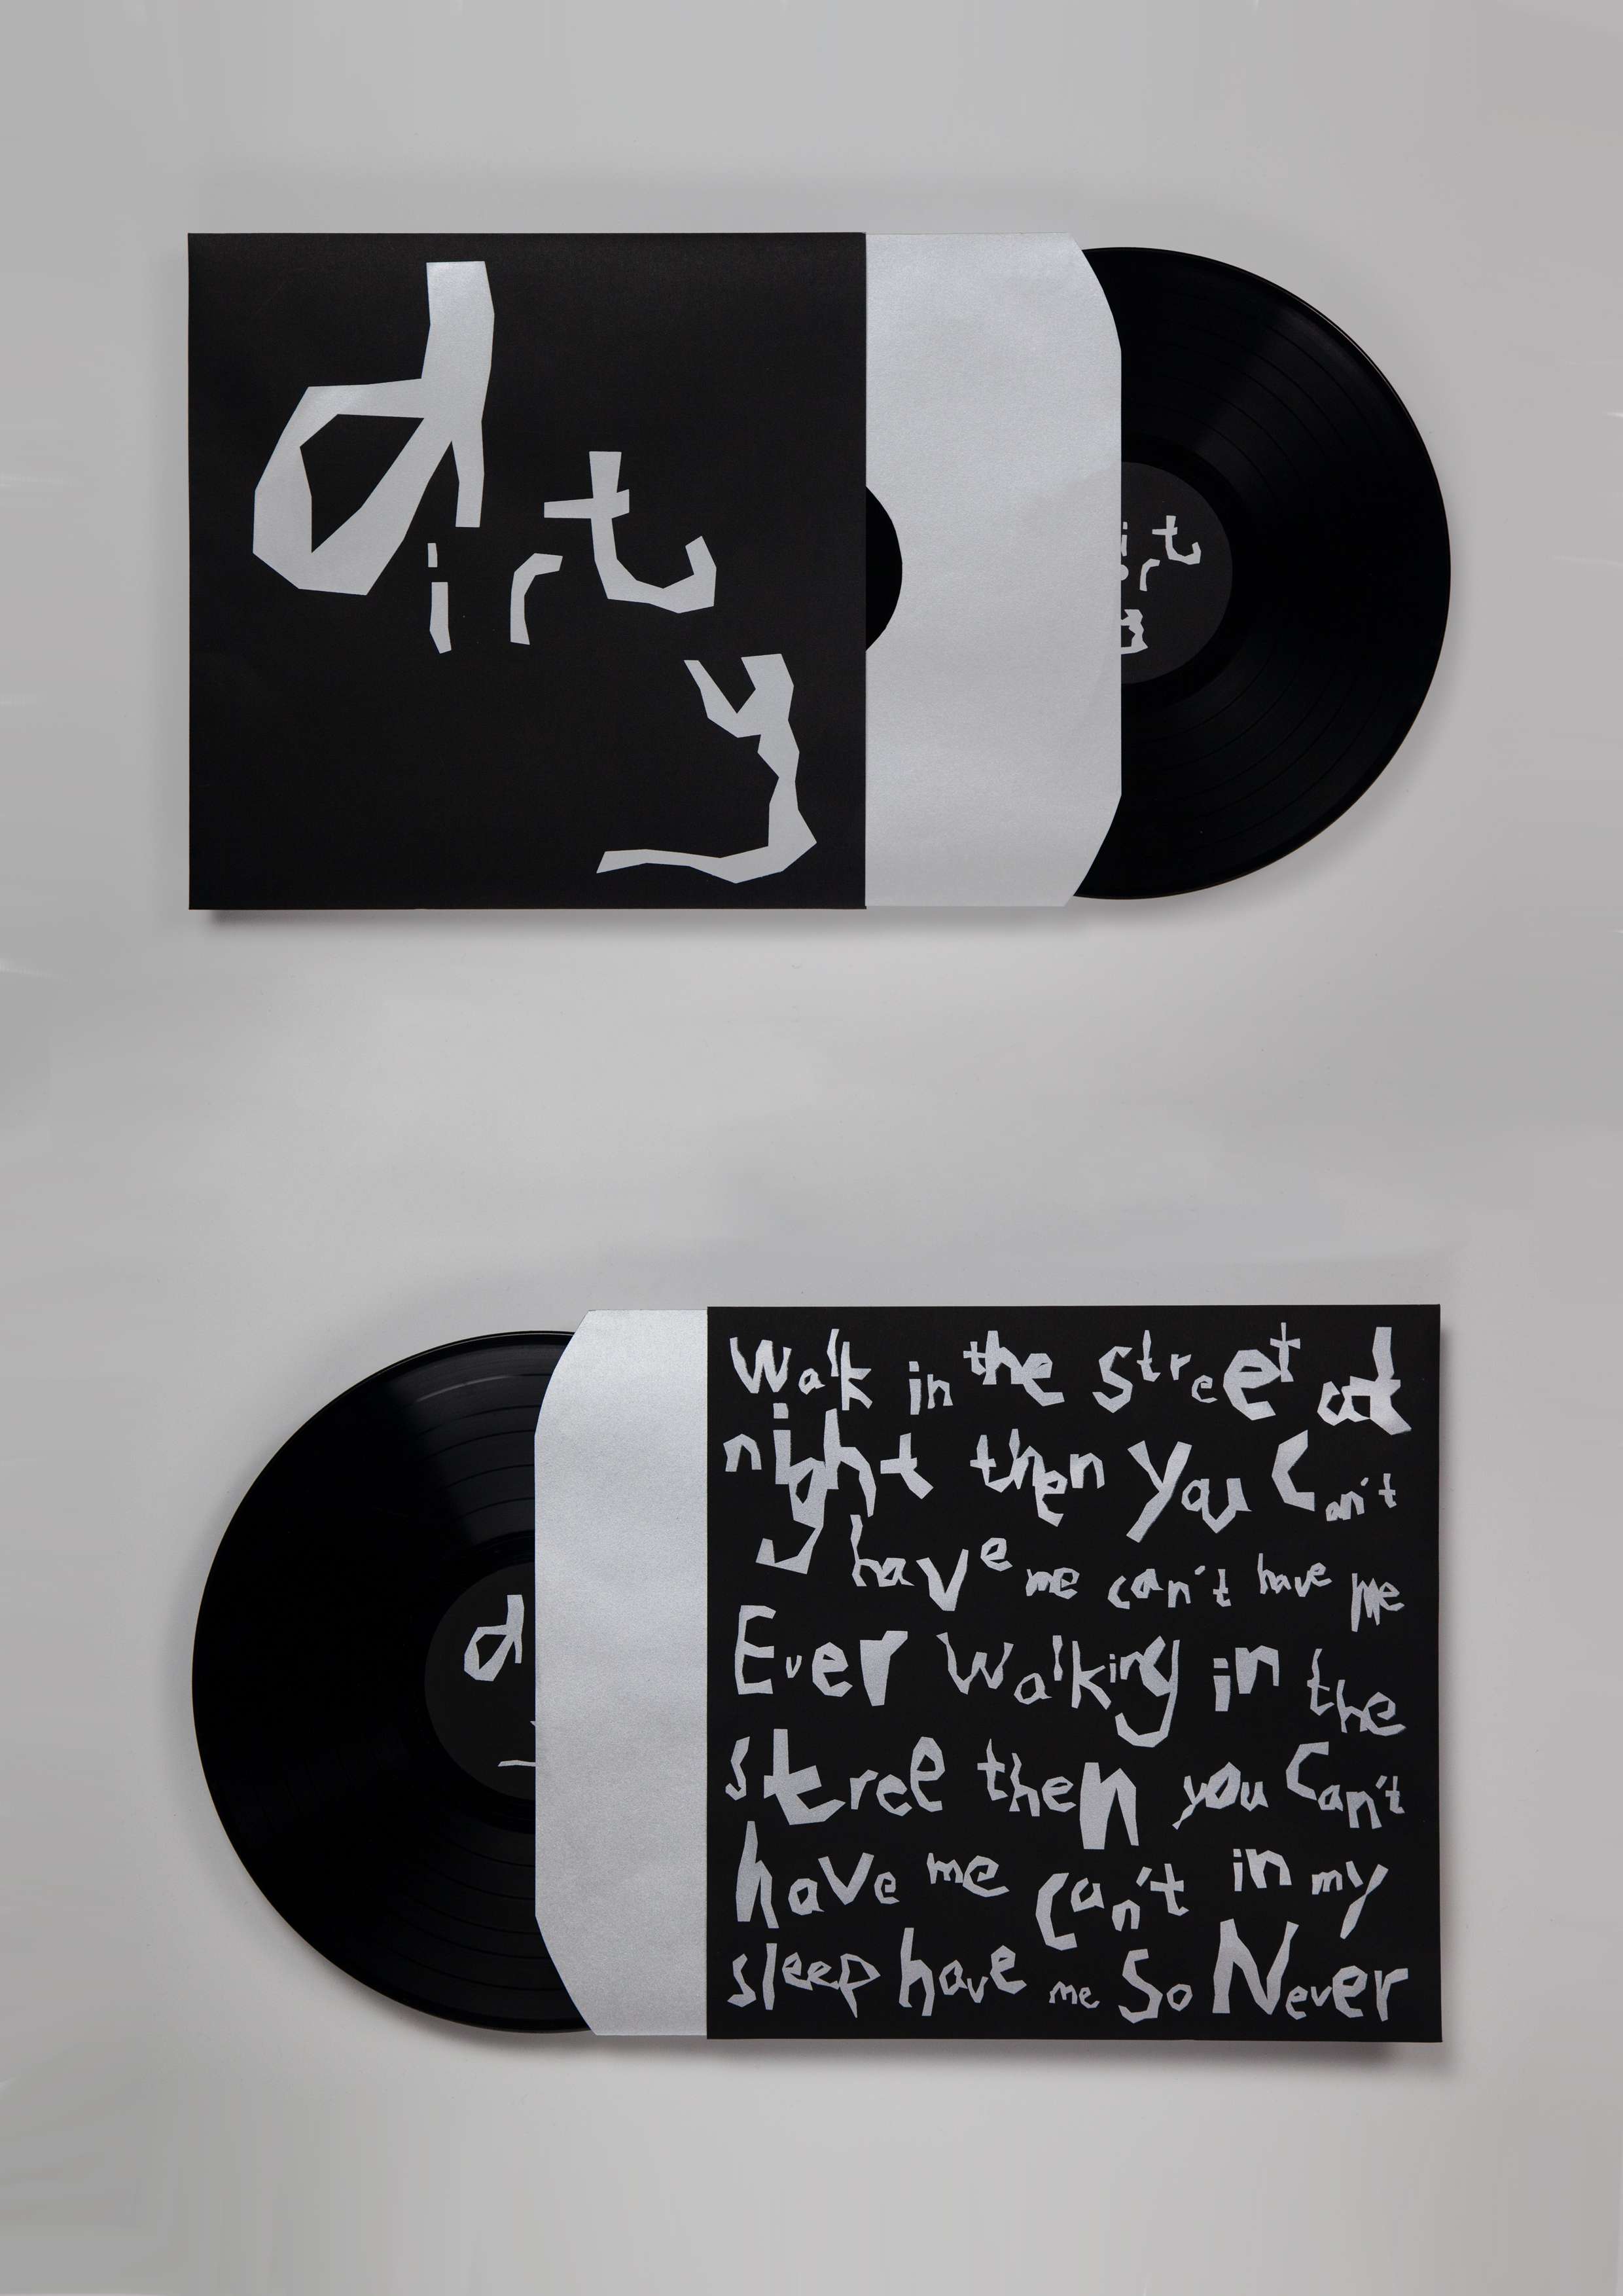 dirty
Walk in the street at
night then you Can't
have me can't have me
Ever Walking in the
stree then you Can't
have me can't in my
sleep have me So Never
d